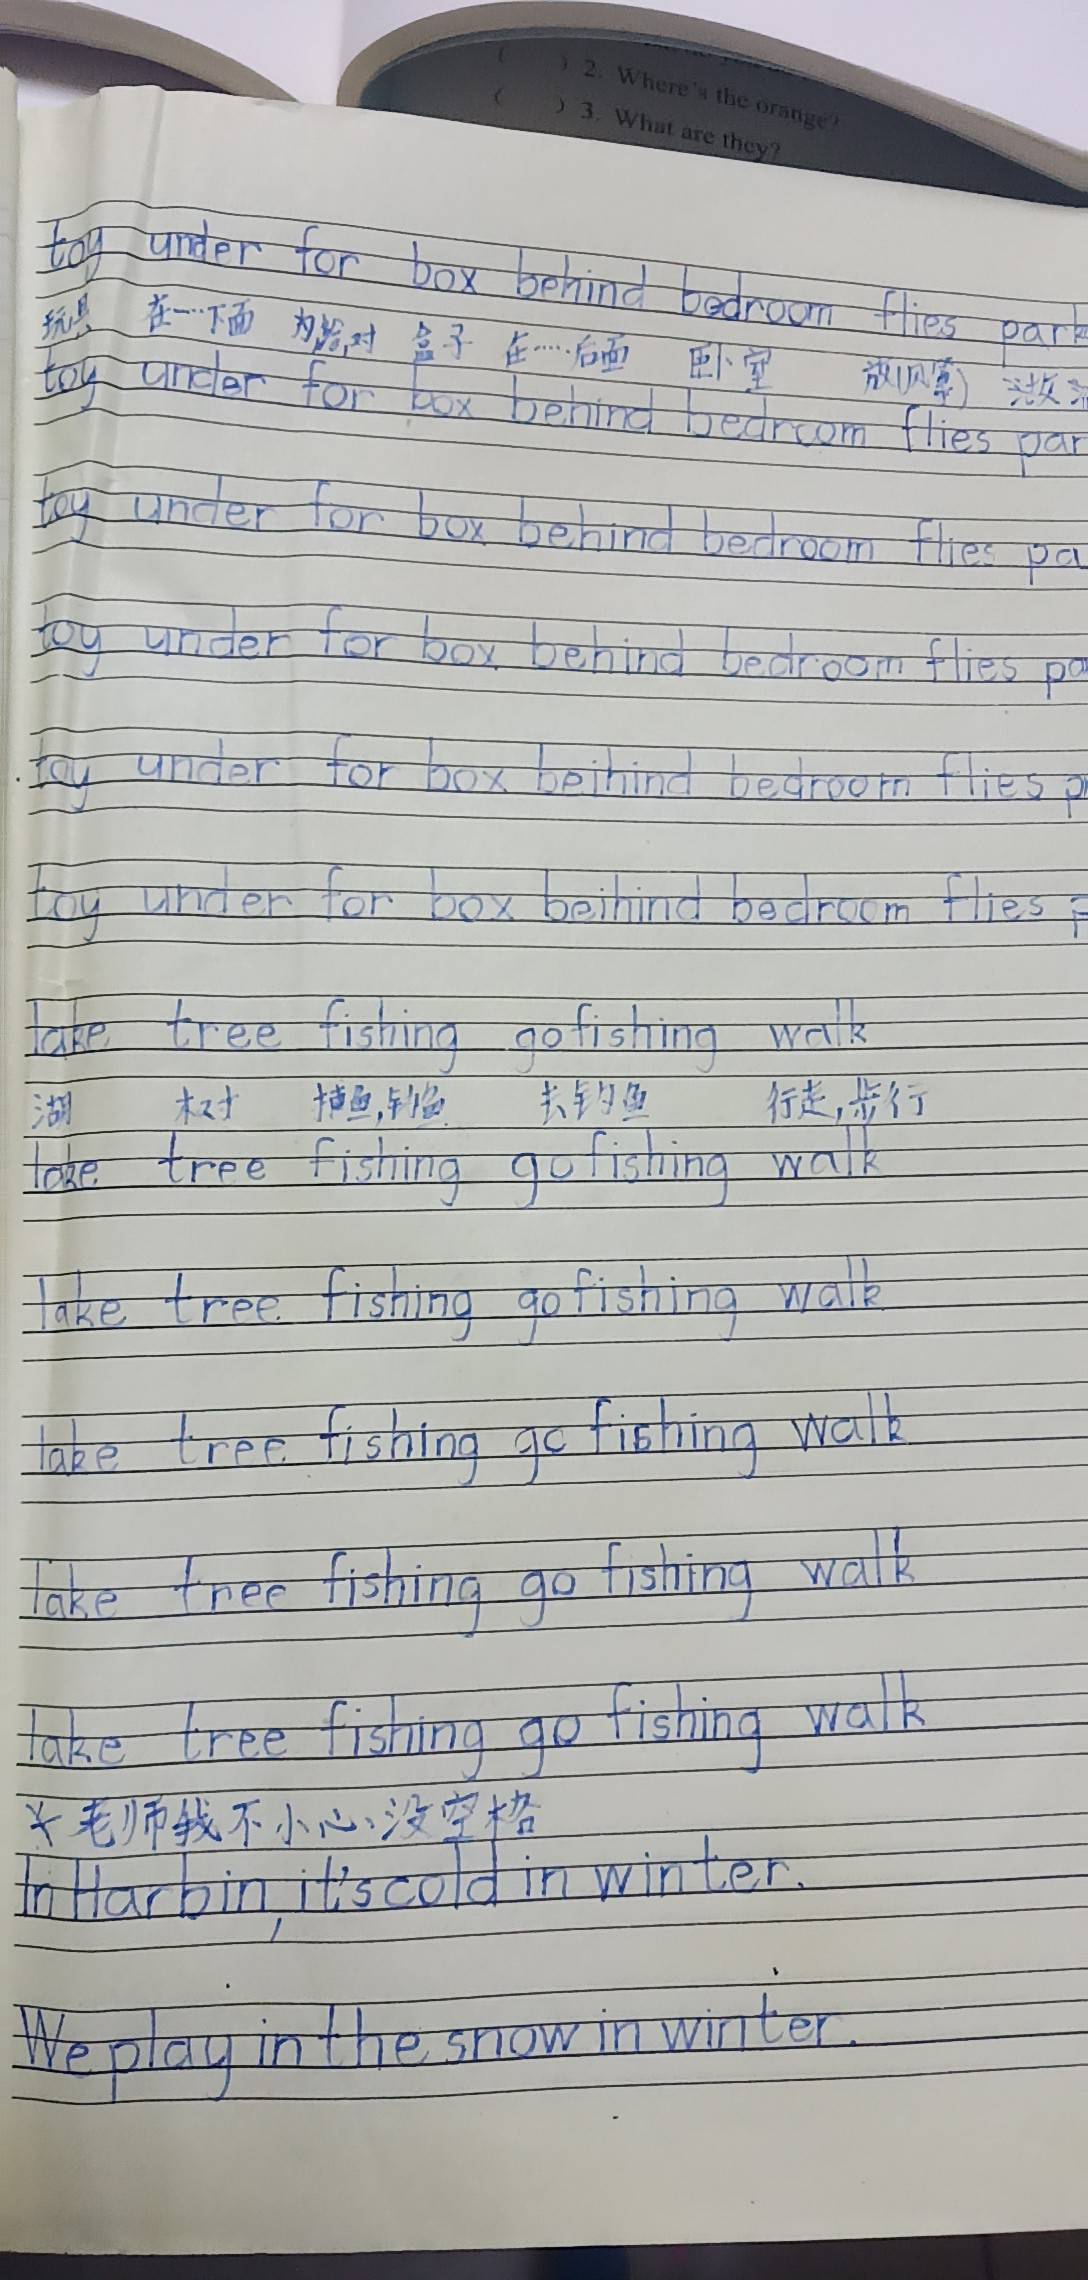 ( ) 2. Where's the orange?
( ) 3. What are they?
toy under for box behind bedroom flies park
玩具 在…下面 为,给,对 盒子 在……后面 卧室 放(风筝)
toy under for box behind bedroom flies par
toy under for box behind bedroom flies pa
toy under for box behind bedroom flies pa
toy under for box beihind bedroom flies p
toy under for box beihind bedroom flies p
lake tree fishing gofishing walk
湖 树 捕鱼,钓鱼 去钓鱼 行走,步行
lake tree fishing gofishing walk
lake tree fishing gofishing walk
lake tree fishing go fishing walk
lake tree fishing go fishing walk
lake tree fishing go fishing walk
*老师我不小心没空格
In Harbin, it's cold in winter.
We play in the snow in winter.